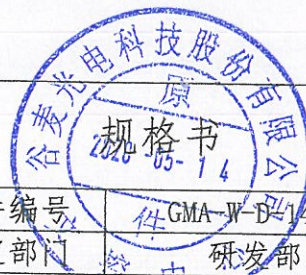 谷麦光电科技股份有限公司
原
规格书
2020-05-14
件
编号 GMA-W-D-1
部门 研发部